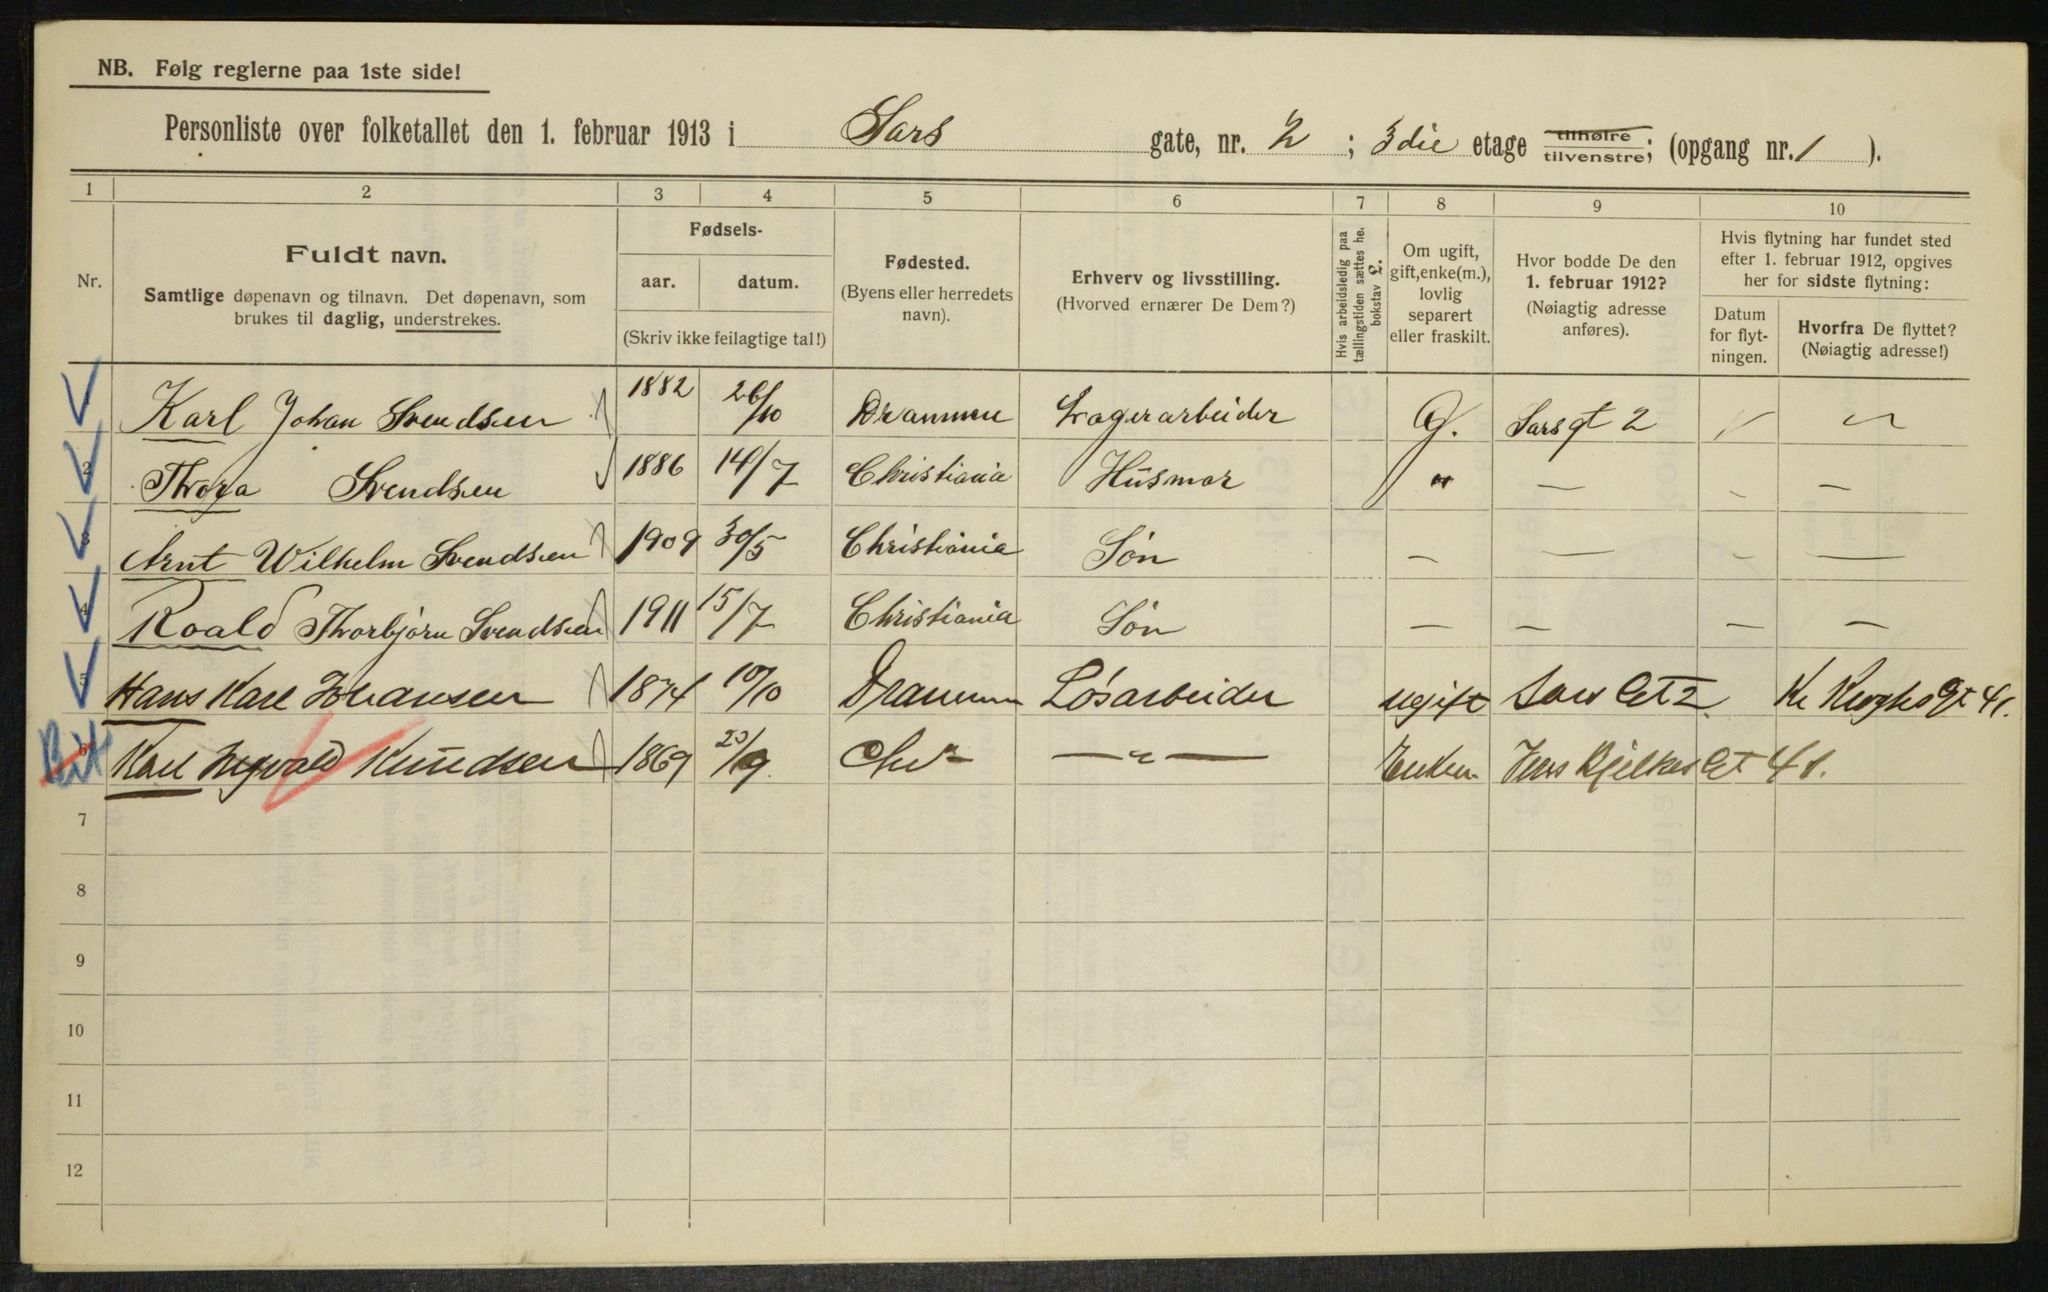 NB. Følg reglerne paa 1ste side!
Personliste over folketallet den 1. februar 1913 i Sars gate, nr. 2 ; 3die etage tilhøire tilvenstre; (opgang nr. 1 ).
1 2 3 4 5 6 7 8 9 10
Nr.
Fuldt navn.
Samtlige døpenavn og tilnavn. Det døpenavn, som
brukes til daglig, understrekes.
Fødsels-
aar. datum.
(Skriv ikke feilagtige tal!)
Fødested.
(Byens eller herredets
navn).
Erhverv og livsstilling.
(Hvorved ernærer De Dem?)
Hvis arbeidsledig paa
tællingstiden sættes her
bokstav L.
Om ugift,
gift, enke(m.),
lovlig
separert
eller fraskilt.
Hvor bodde De den
1. februar 1912?
(Nøiagtig adresse
anføres).
Hvis flytning har fundet sted
efter 1. februar 1912, opgives
her for sidste flytning:
Datum
for flyt-
ningen.
Hvorfra De flyttet?
(Nøiagtig adresse!)
1 Karl Johan Svendsen 1882 26/10 Drammen Lagerarbeider G. Sarsgt 2
2 Thora Svendsen 1886 14/7 Christiania Husmor " — - —
3 Arnt Wilhelm Svendsen 1909 30/5 Christiania Søn — — - —
4 Roald Thorbjørn Svendsen 1911 15/7 Christiania Søn — — — —
5 Hans Karl Johansen 1874 10/10 Drammen Løsarbeider ugift Sars Gt 2 Gt 41.
6 Karl Knudsen 1869 20/9 Chr — " — Enkem. Jens Bjelkes Gt 41.
7
8
9
10
11
12